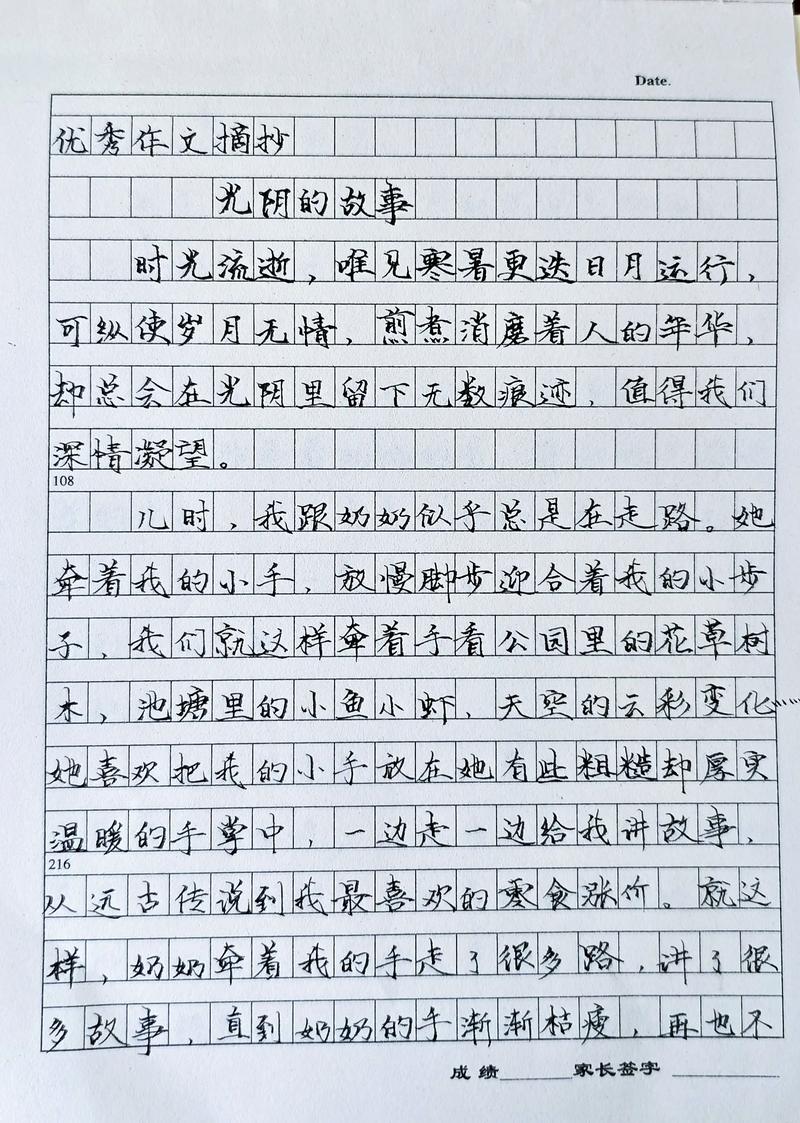 Date.
优秀作文摘抄
光阴的故事
时光流逝，唯见寒暑更迭日月运行，
可纵使岁月无情，煎煮消磨着人的年华，
却总会在光阴里留下无数痕迹，值得我们
深情凝望。
108
儿时，我跟奶奶似乎总是在走路。她
牵着我的小手，放慢脚步迎合着我的小步
子，我们就这样牵着手看公园里的花草树
木，池塘里的小鱼小虾，天空的云彩变化……
她喜欢把我的小手放在她有些粗糙却厚实
温暖的手掌中，一边走一边给我讲故事，
216
从远古传说到我最喜欢的零食涨价。就这
样，奶奶牵着我的手走了很多路，讲了很
多故事，直到奶奶的手渐渐枯瘦，再也不
成绩 家长签字